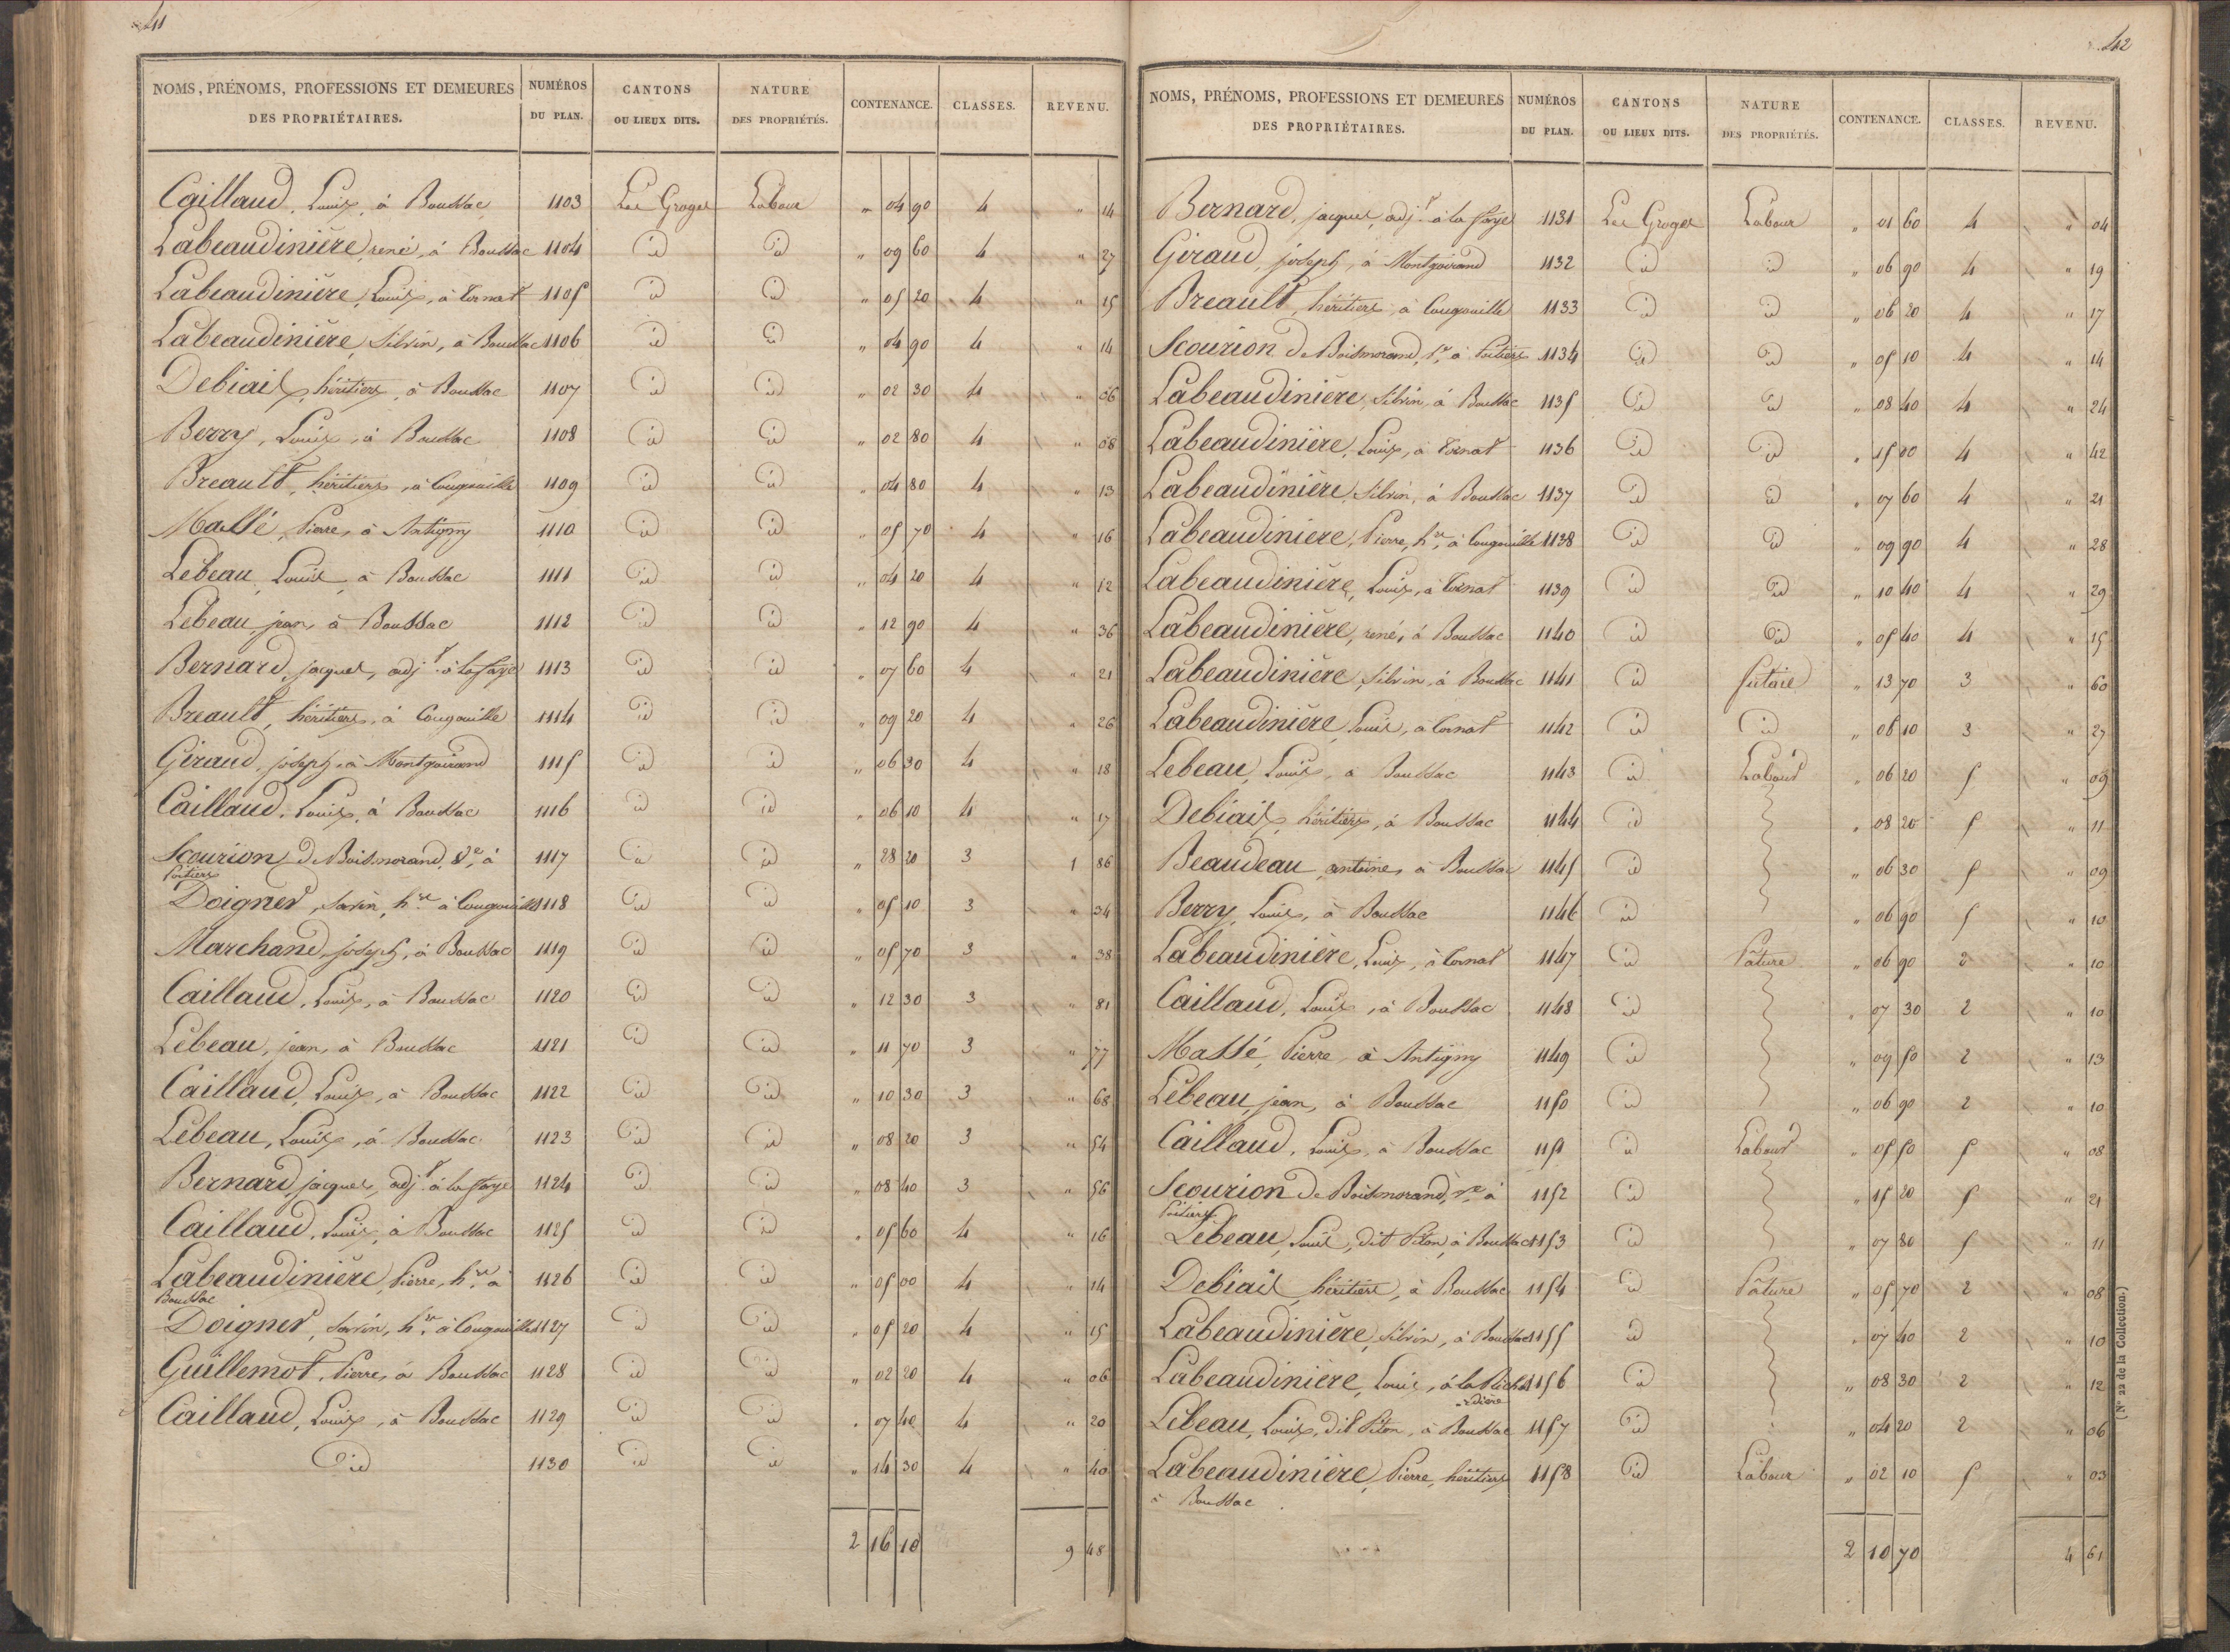 41
NOMS, PRÉNOMS, PROFESSIONS ET DEMEURES DES PROPRIÉTAIRES. NUMÉROS DU PLAN. CANTONS OU LIEUX DITS. NATURE DES PROPRIÉTÉS. CONTENANCE. CLASSES. REVENU.
Caillaud, Louis, à Boussac 1103 Les Groges Labour " 04 90 4 " 14
Labeaudinière, rené, à Boussac 1104 id id " 09 60 4 " 27
Labeaudinière, Louis, à Cornat 1105 id id " 05 20 4 " 15
Labeaudinière, Silvin, à Boussac 1106 id id " 04 90 4 " 14
Debiais, héritiers, à Boussac 1107 id id " 02 30 4 " 06
Berry, Louis, à Boussac 1108 id id " 02 80 4 " 08
Breault, héritiers, à Cougouille 1109 id id " 04 80 4 " 13
Massé, Pierre, à Antigny 1110 id id " 05 70 4 " 16
Lebeau, Louis, à Boussac 1111 id id " 04 20 4 " 12
Lebeau, jean, à Boussac 1112 id id " 12 90 4 " 36
Bernard, jacques, adjt à la faye 1113 id id " 07 60 4 " 21
Breault, héritiers, à Cougouille 1114 id id " 09 20 4 " 26
Giraud, joseph, à Montgoirand 1115 id id " 06 30 4 " 18
Caillaud, Louis, à Boussac 1116 id id " 06 10 4 " 17
Scourion de Boismorand, Ve, à 1117 id id " 28 20 3 1 86
Poitiers
Doigner, Savin, hre à Cougouille 1118 id id " 05 10 3 " 34
Marchand, joseph, à Boussac 1119 id id " 05 70 3 " 38
Caillaud, Louis, à Boussac 1120 id id " 12 30 3 " 81
Lebeau, jean, à Boussac 1121 id id " 11 70 3 " 77
Caillaud, Louis, à Boussac 1122 id id " 10 30 3 " 68
Lebeau, Louis, à Boussac 1123 id id " 08 20 3 " 54
Bernard, jacques, adjt à la faye 1124 id id " 08 40 3 " 56
Caillaud, Louis, à Boussac 1125 id id " 05 60 4 " 16
Labeaudinière, Pierre, hre à 1126 id id " 05 00 4 " 14
Boussac
Doigner, Savin, hre à Cougouille 1127 id id " 05 20 4 " 15
Guillemot, Pierre, à Boussac 1128 id id " 02 20 4 " 06
Caillaud, Louis, à Boussac 1129 id id " 07 40 4 " 20
id 1130 id id " 14 30 4 " 40
2 16 10 9 48
42
NOMS, PRÉNOMS, PROFESSIONS ET DEMEURES DES PROPRIÉTAIRES. NUMÉROS DU PLAN. CANTONS OU LIEUX DITS. NATURE DES PROPRIÉTÉS. CONTENANCE. CLASSES. REVENU.
Bernard, jacques, adjt à la faye 1131 Les Groges Labour " 01 60 4 " 04
Giraud, joseph, à Montgoirand 1132 id id " 06 90 4 " 19
Breault, héritiers, à Cougouille 1133 id id " 06 20 4 " 17
Scourion de Boismorand, Ve, à Poitiers 1134 id id " 05 10 4 " 14
Labeaudinière, Silvin, à Boussac 1135 id id " 08 40 4 " 24
Labeaudinière, Louis, à Cornat 1136 id id " 15 00 4 " 42
Labeaudinière, Silvin, à Boussac 1137 id id " 07 60 4 " 21
Labeaudinière, Pierre, hre, à Cougouille 1138 id id " 09 90 4 " 28
Labeaudinière, Louis, à Cornat 1139 id id " 10 40 4 " 29
Labeaudinière, rené, à Boussac 1140 id id " 05 40 4 " 15
Labeaudinière, Silvin, à Boussac 1141 id futaie " 13 70 3 " 60
Labeaudinière, Louis, à Cornat 1142 id id " 06 10 3 " 27
Lebeau, Louis, à Boussac 1143 id Labour " 06 20 5 " 09
Debiais, héritiers, à Boussac 1144 id " 08 20 5 " 11
Beaudeau, antoine, à Boussac 1145 id " 06 30 5 " 09
Berry, Louis, à Boussac 1146 id " 06 90 5 " 10
Labeaudinière, Louis, à Cornat 1147 id Pâture " 06 90 2 " 10
Caillaud, Louis, à Boussac 1148 id " 07 30 2 " 10
Massé, Pierre, à Antigny 1149 id " 09 50 2 " 13
Lebeau, jean, à Boussac 1150 id " 06 90 2 " 10
Caillaud, Louis, à Boussac 1151 id Labour " 05 50 5 " 08
Scourion de Boismorand, Ve à 1152 id " 15 20 5 " 21
Poitiers
Lebeau, Louis, dit Piton, à Boussac 1153 id " 07 80 5 " 11
Debiais, héritiers, à Boussac 1154 id Pâture " 05 70 2 " 08
Labeaudinière, Silvin, à Boussac 1155 id " 07 40 2 " 10
Labeaudinière, Louis, à la Richa 1156 id " 08 30 2 " 12
-rdière
Lebeau, Louis, dit Piton, à Boussac 1157 id " 04 20 2 " 06
Labeaudinière, Pierre, héritiers 1158 id Labour " 02 10 5 " 03
à Boussac
2 10 70 4 61
(N° 22 de la Collection.)